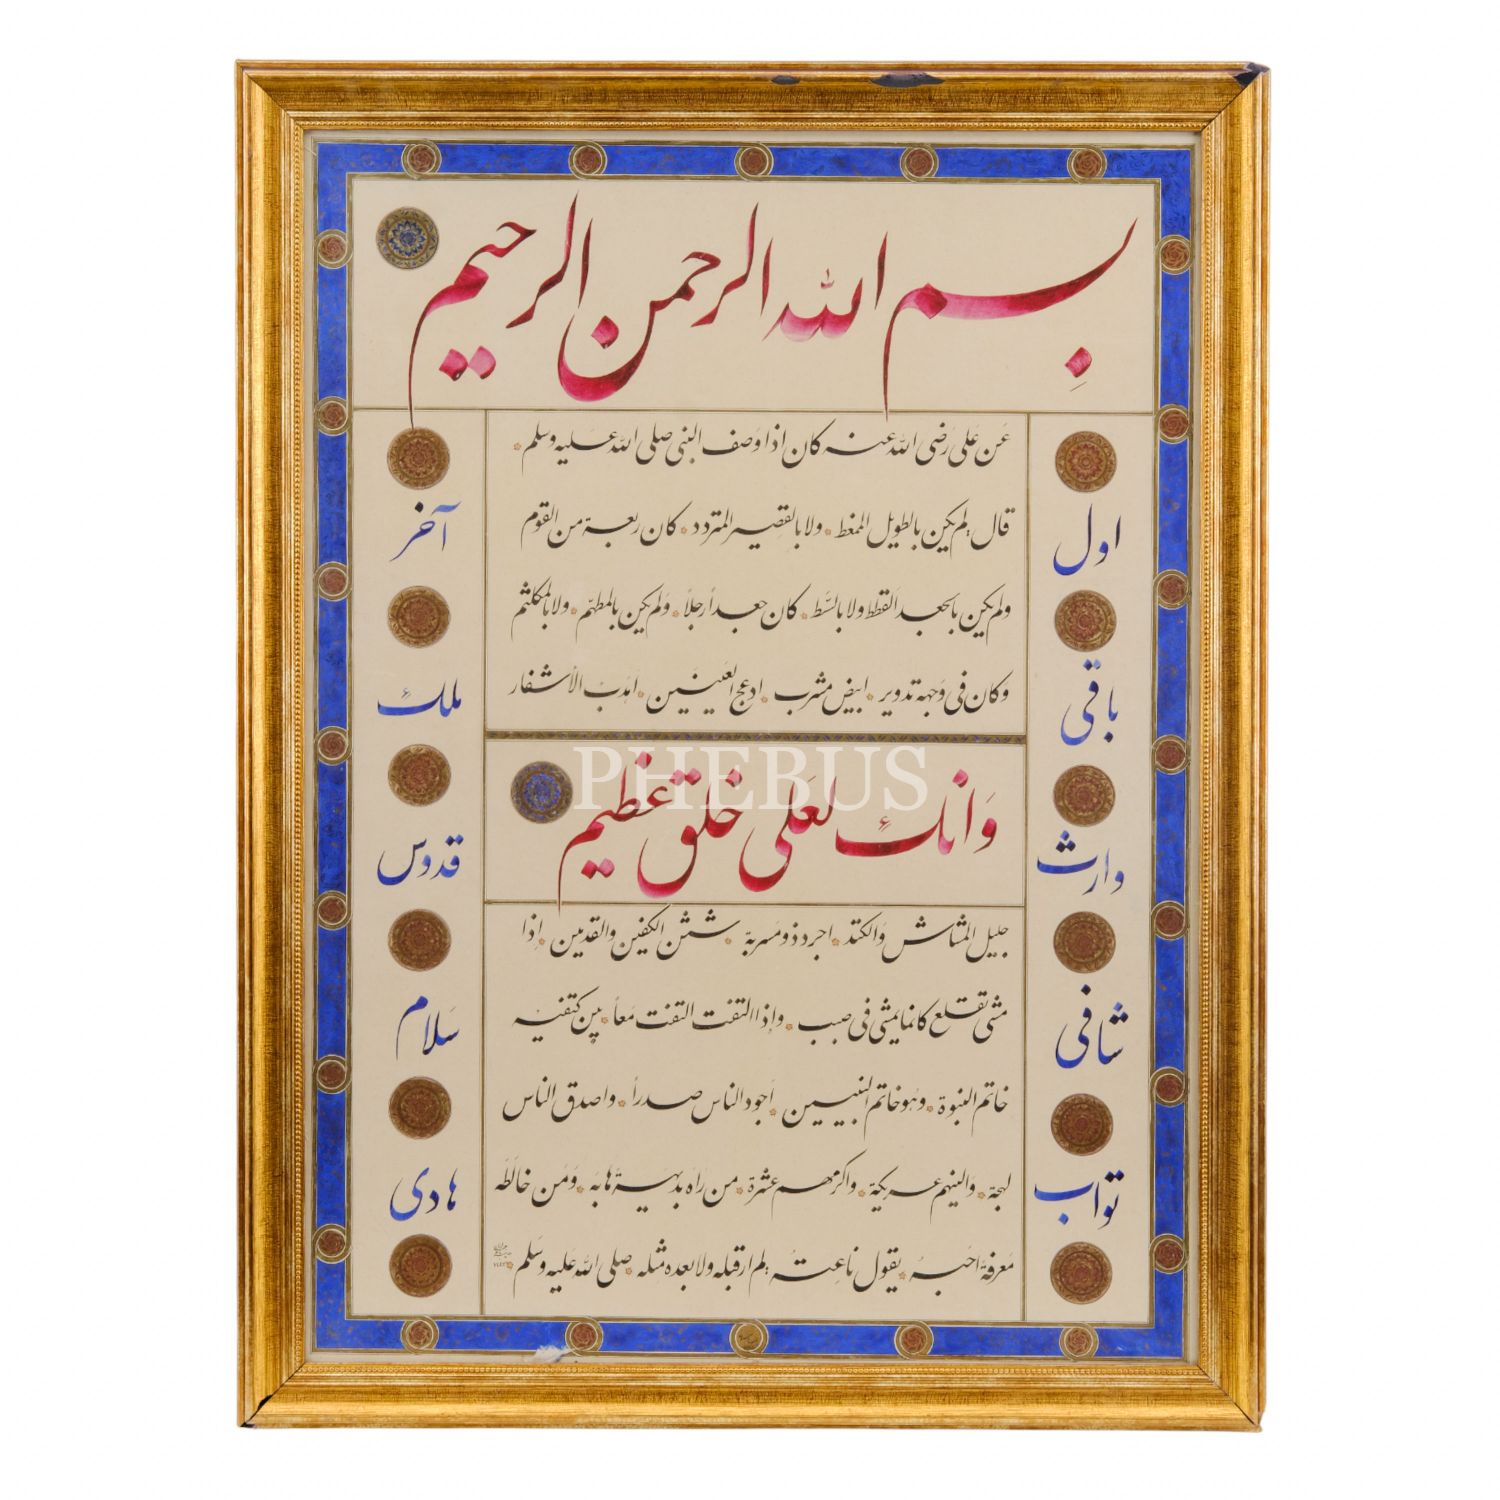 بسم الله الرحمن الرحيم
عن على رضى الله عنه كان اذا وصف النبى صلى الله عليه وسلم
قال لم يكن بالطويل الممغط ولا بالقصير المتردد كان ربعة من القوم
ولم يكن بالجعد القطط ولا بالسَّبط كان جعداً رجلاً ولم يكن بالمطهّم ولا بالمكلثم
وكان فى وجهه تدوير ابيض مشرب ادعج العينين اهدب الأشفار
وَانك لعَلى خلق عظيم
جليل المشاش والكتد اجرد ذو مسربة ششن الكفين والقدمين اِذا
مشى تقلع كانما يمشى فى صبب وإذا التفت التفت معاً بين كتفيه
خاتم النبوة وهو خاتم النبيين اجود الناس صدراً واصدق الناس
لهجة والينهم عريكة واكرمهم عشرة من رَاه بديهة هَابه وَمن خالطَه
مَعرفة احبه يقول ناعته لم ار قبله ولا بعده مثله صلى الله عليه وسلم
اول
باقى
وارث
شافى
تواب
آخر
ملك
قدوس
سلام
هادى
PHEBUS